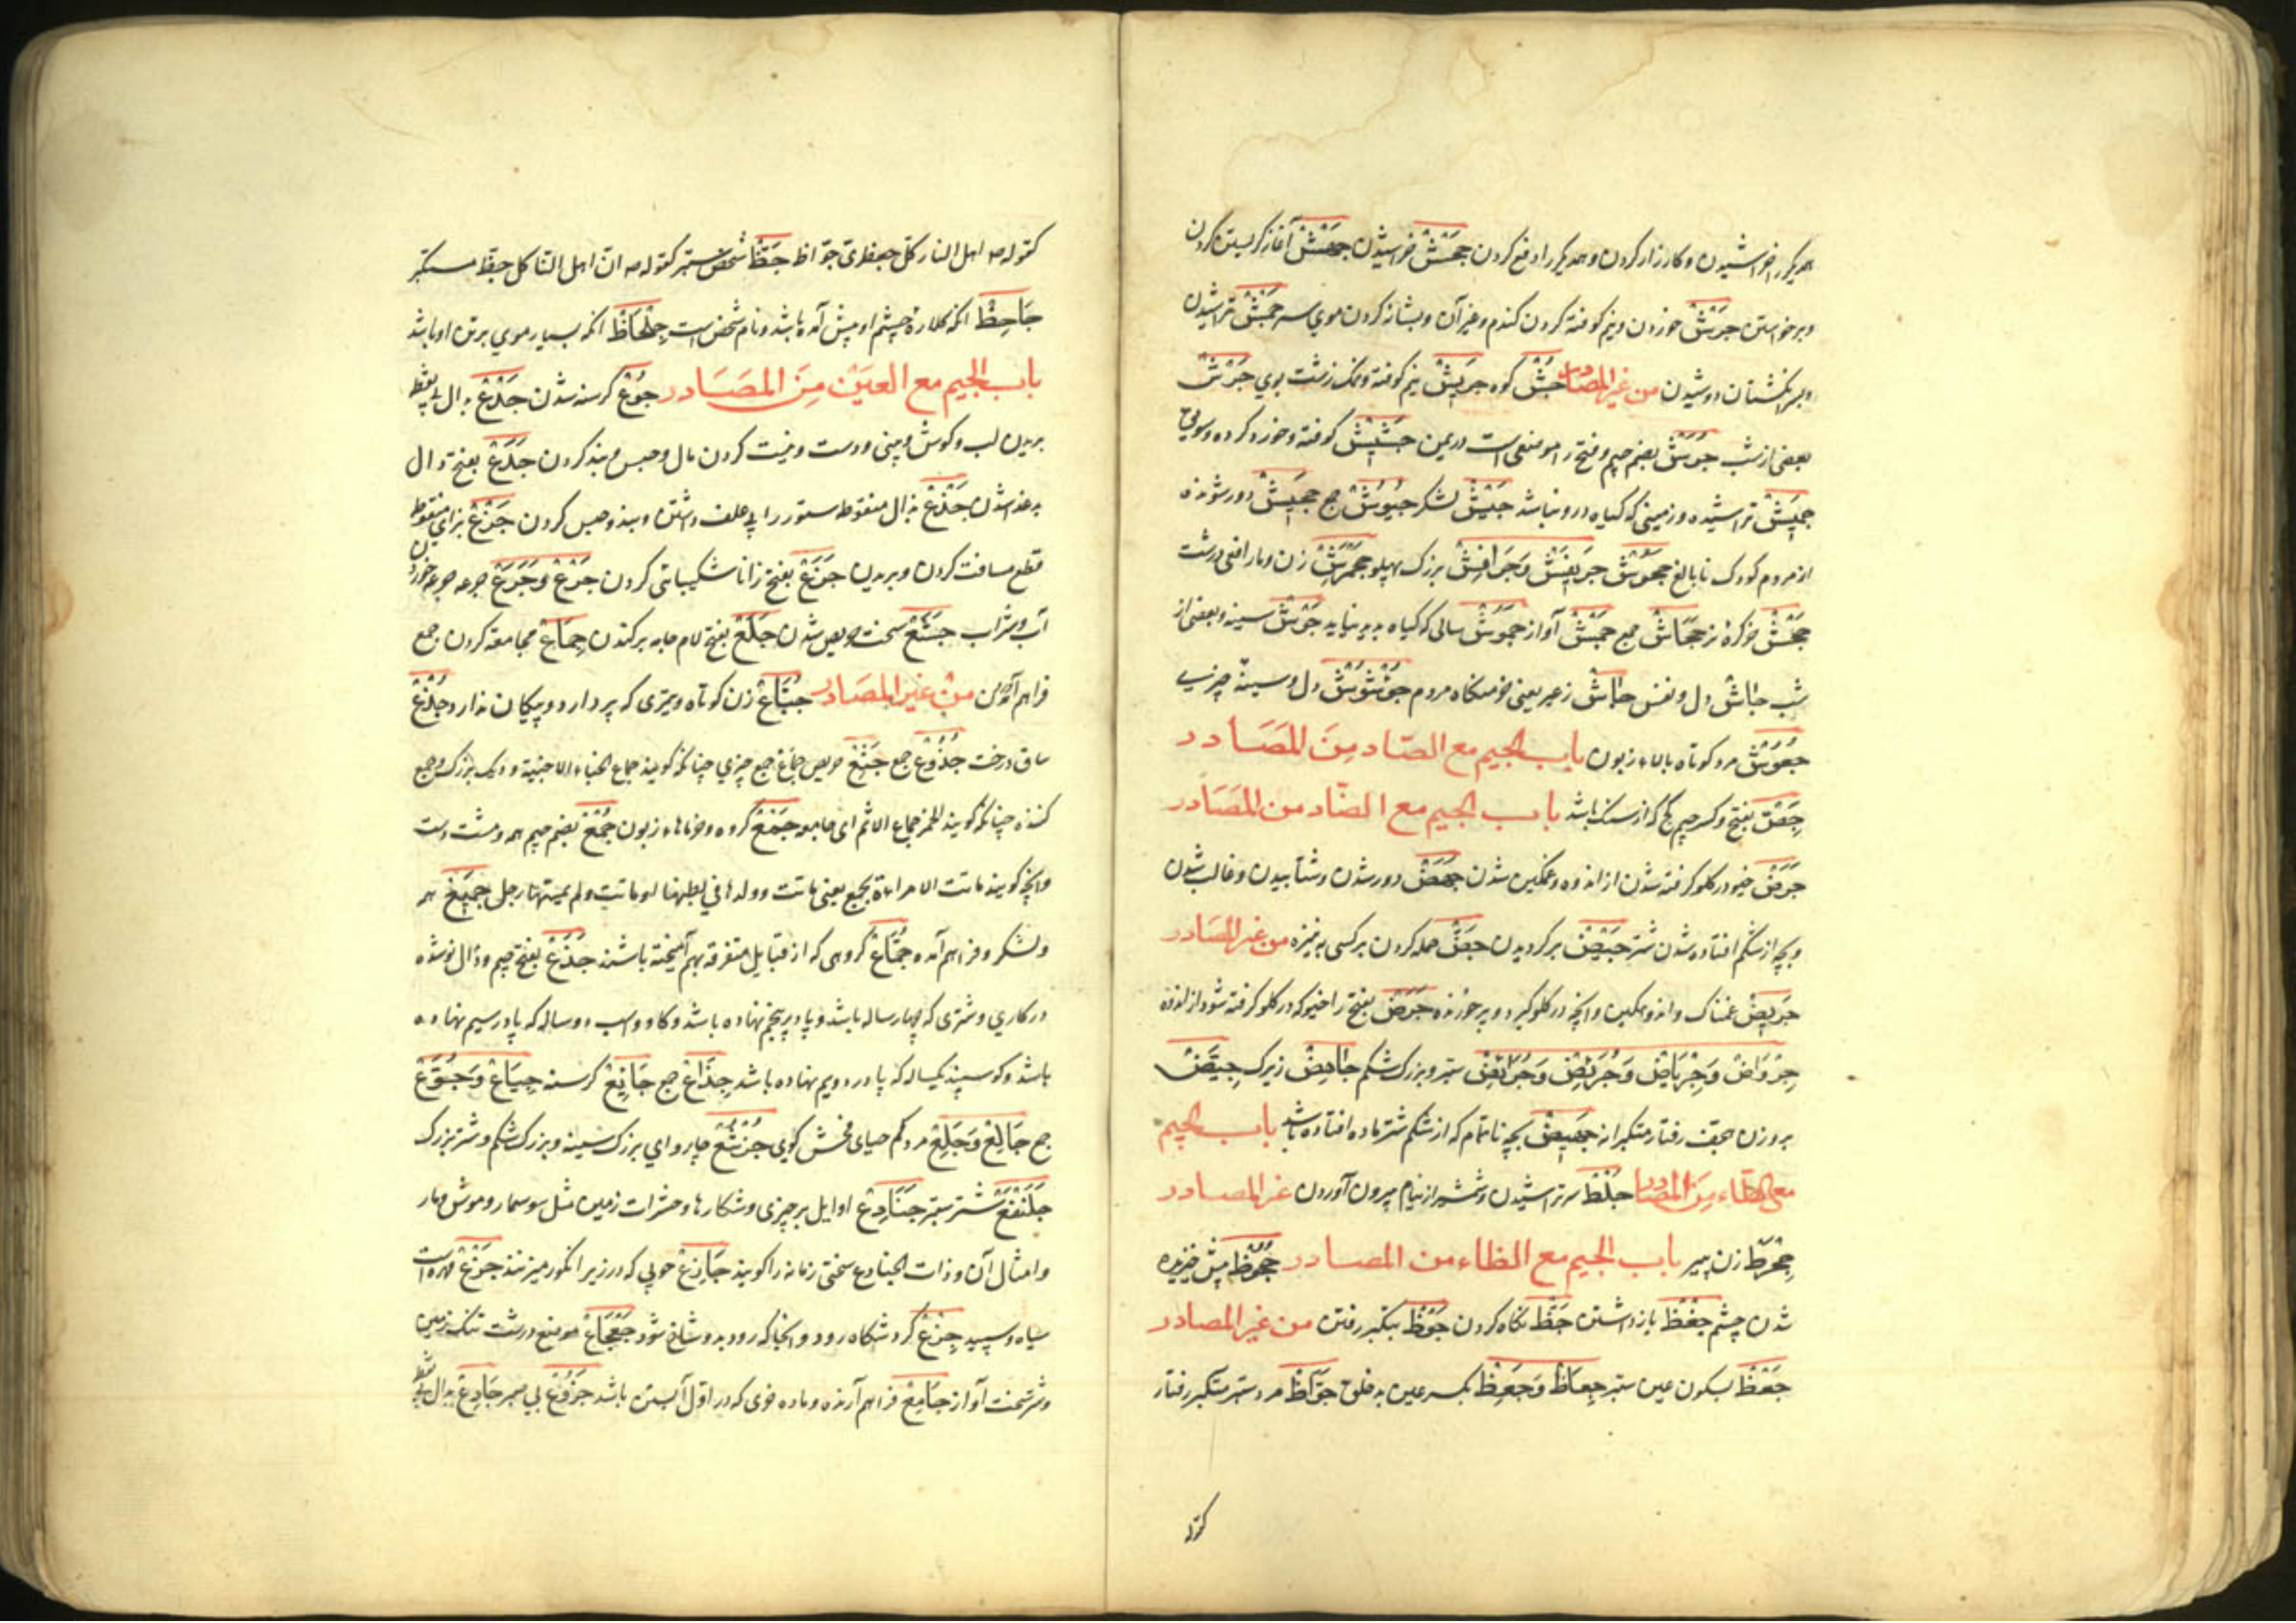 همدیگر را خراشیدن و کارزار کردن و همدیگر را دفع کردن جَحْشْ خراشیدن جَهْشْ آغاز گریستن کردن
و برخواستن جَرْشْ خوردن و نیم کوفته کردن گندم و غیر آن و بشانه کردن موی سر جَمْشْ تراشیدن
و بسر انگشتان دوشیدن من غیر المصادر جُشّ کوه جَرِیشْ نیم کوفته و نمک زشت بوی جَرْش
بعضی از شب جُرَشْ بضم جیم و فتح را موضعی است در یمن جَشِیشْ کوفته و خورد کرده و سویق
جَمِیشْ تراشیده و زمینی که گیاه درو نباشد جَیْشْ لشکر جُیُوشْ جمع جَحِیشْ دور شونده
از مردم کودک نا بالغ جَحْوَشْ جَرَنْفَشْ وَجُرَافِشْ بزرگ پهلو جَحْمَرِشْ زن و مار افعی درشت
جَحْشْ خر کره نر جِحَاشْ جمع جَمْشْ آواز جَمُوشْ سالی که گیاه پدید نیاید جَوْشْ سینه و بعضی از
شب جَاشْ دل و نفس جَاشْ زعر یعنی خوفگاه مردم جُؤْشُوشْ دل و سینهٔ چیزی
جُعْشُوشْ مرد کوتاه بالا و زبون باب الجیم مع الصّاد مِنَ المَصَادر
جِصّ بفتح و کسر جیم گچ که از سنگ باشد باب الجیم مع الضّاد من المَصَادر
جَرَضْ خیو در گلو گرفته شدن از اندوه و غمگین شدن جَهْضْ دور شدن و شتابیدن و غالب شدن
و بچه از شکم افتاده شدن شتر جَیْضْ برگردیدن جَضّ حمله کردن بر کسی به نیزه من غیر المصادر
جَرِیضْ غمناک و اندوهگین و آنچه در گلو گیرد و پر خورنده جَرَضْ بفتح را خیو که در گلو گرفته شود از اندوه
جِرْوَاضْ وَجِرْیَاضْ وَجُرَئِضْ وَجُرَائِضْ ستبر و بزرگ شکم جَاهِضْ زیرک جِیَضّ
بر وزن هجف رفتار متکبرانه جَهِیضْ بچه ناتمام که از شکم شتر ماده افتاده باشد باب الجیم
مع الطّاء مِنَ المصادر جَلْطْ سر تراشیدن و شمشیر از نیام بیرون آوردن غیر المصادر
جِحْرِطْ زن پیر باب الجیم مع الظاء من المصادر جُحُوظْ پیش خیزیده
شدن چشم جَفْظْ باز داشتن جَظّ نگاه کردن جَوْظْ بتکبر رفتن من غیر المصادر
جَعْظْ بسکون عین ستبر جِعَاظْ وَجَعِظْ بکسر عین بدخلق جَوَّاظْ مرد ستبر متکبر رفتار
کقوله
کقوله ص اهل النار کل جعظری جوّاظ جَظّ شخص ستبر کقوله ص انّ اهل النّار کل جظّ مستکبر
جَاحِظْ آنکه کلاره چشم او پیش آمده باشد و نام شخص است جِلْحَاظْ آنکه بسیار موی بر تن او باشد
باب الجیم مع العین مِنَ المَصَادر جُوْعْ گرسنه شدن جَدْعْ بدال بی نقطه
بریدن لب و گوش و بینی و دست و نیست کردن مال و حبس و بند کردن جَدَعْ بفتح دال
بد غذا شدن جَذْعْ بذال منقوطه ستور را بی علف داشتن و بند و حبس کردن جَزْعْ بزای منقوط
قطع مسافت کردن و بریدن جَزَعْ بفتح زا ناشکیبایی کردن جَرْعْ وَجَرَعْ جرعه جرعه خوردن
آب و شراب جَشَعْ سخت حریص شدن جَلَعْ بفتح لام جامه برکندن جِمَاعْ مجامعه کردن جمع
فراهم آمدن مِنْ غَیر المَصَادر جُبَّاعْ زن کوتاه و تیری که پر دارد و پیکان ندارد جِذْعْ
ساق درخت جُذُوعْ جمع جَشِعْ حریص جِمَاعْ جمع چیزی چنانکه گویند جماع الخباء الاخبیة و دیگ بزرگ و جمع
کننده چنانکه گویند الخمر جماع الاثم ای جامعه جَمْعْ گروه و خرماهاء زبون جُمْعْ بضم جیم همه و مشت دست
و آنچه گویند ماتت المراءة بجمع یعنی ماتت و ولدها فی بطنها او ماتت ولم یمسّها رجل جَمِیعْ همه
و لشکر و فراهم آمده جُمَّاعْ گروهی که از قبایل متفرقه بهم آمیخته باشند جَذَعْ بفتح جیم و ذال نو شده
در کاری و شتری که چهار ساله باشد و پا در پنجم نهاده باشد و گاو و اسب دو ساله که پا در سیم نهاده
باشد و گوسپند یکساله که پا در دویم نهاده باشد جِذَاعْ جمع جَائِعْ گرسنه جِیَاعْ وَجُوَّعْ
جمع جَالِعْ وَجَلِعْ مرد کم حیای فحش گوی جُرْشُعْ چاروای بزرگ سینه و بزرگ شکم و شتر بزرگ
جَلَنْفَعْ شتر ستبر جَنَادِعْ اوایل هر چیزی و شکارها و حشرات زمین مثل سوسمار و موش و مار
و امثال آن و ذات الجنادع سختی زمانه را گویند جَازِعْ چوبی که در زیر انگور میزنند جَزْعْ مهره است
سیاه و سپید جِزْعْ گردشگاه رود و آنجا که رود بدو شاخ شود جَعْجَاعْ موضع درشت تنگ زمین
و شتر سخت آواز جَامِعْ فراهم آرنده و ماده خری که در اوّل آبستن باشد جَزُوعْ بی صبر جَادِعْ بدال بی نقطه